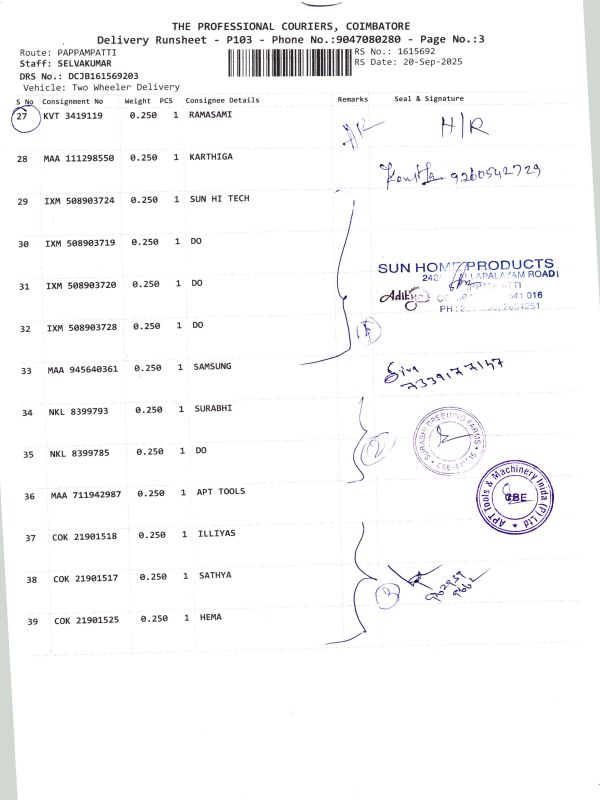 THE PROFESSIONAL COURIERS, COIMBATORE
Delivery Runsheet - P103 - Phone No.:9047080280 - Page No.:3
Route: PAPPAMPATTI
RS No.: 1615692
Staff: SELVAKUMAR
RS Date: 20-Sep-2025
DRS No.: DCJB161569203
Vehicle: Two Wheeler Delivery
S No Consignment No Weight PCS Consignee Details Remarks Seal & Signature
27 KVT 3419119 0.250 1 RAMASAMI H/R H/R
28 MAA 111298550 0.250 1 KARTHIGA 9260542729
29 IXM 508903724 0.250 1 SUN HI TECH
30 IXM 508903719 0.250 1 DO
SUN HOME PRODUCTS
31 IXM 508903720 0.250 1 DO
Aditya
32 IXM 508903728 0.250 1 DO 4
33 MAA 945640361 0.250 1 SAMSUNG Siva
7339177147
34 NKL 8399793 0.250 1 SURABHI
SURABHI BREEDING FARMS
35 NKL 8399785 0.250 1 DO 2
36 MAA 711942987 0.250 1 APT TOOLS
APT Tools & Machinery Inida (P) Ltd
CBE
37 COK 21901518 0.250 1 ILLIYAS
38 COK 21901517 0.250 1 SATHYA 3
39 COK 21901525 0.250 1 HEMA